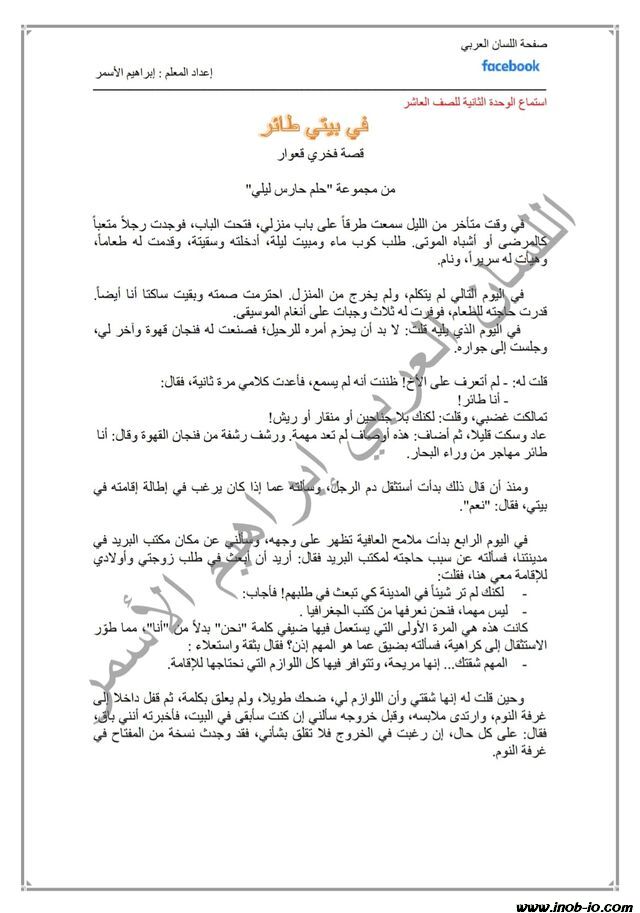 صفحة اللسان العربي
facebook
إعداد المعلم : إبراهيم الأسمر
استماع الوحدة الثانية للصف العاشر
في بيتي طائر
قصة فخري قعوار
من مجموعة "حلم حارس ليلي"
في وقت متأخر من الليل سمعت طرقاً على باب منزلي، فتحت الباب، فوجدت رجلاً متعباً
كالمرضى أو أشباه الموتى. طلب كوب ماء ومبيت ليلة، أدخلته وسقيتة، وقدمت له طعاماً،
وهيأت له سريراً، ونام.
في اليوم التالي لم يتكلم، ولم يخرج من المنزل. احترمت صمته وبقيت ساكتا أنا أيضاً.
قدرت حاجته للطعام، فوفرت له ثلاث وجبات على أنغام الموسيقى.
في اليوم الذي يليه قلت: لا بد أن يحزم أمره للرحيل؛ فصنعت له فنجان قهوة وآخر لي،
وجلست إلى جواره.
قلت له: - لم أتعرف على الأخ! ظننت أنه لم يسمع، فأعدت كلامي مرة ثانية، فقال:
- أنا طائر!
تمالكت غضبي، وقلت: لكنك بلا جناحين أو منقار أو ريش!
عاد وسكت قليلا، ثم أضاف: هذه أوصاف لم تعد مهمة. ورشف رشفة من فنجان القهوة وقال: أنا
طائر مهاجر من وراء البحار.
ومنذ أن قال ذلك بدأت أستثقل دم الرجل، وسألته عما إذا كان يرغب في إطالة إقامته في
بيتي، فقال: "نعم".
في اليوم الرابع بدأت ملامح العافية تظهر على وجهه، وسألني عن مكان مكتب البريد في
مدينتنا، فسألته عن سبب حاجته لمكتب البريد فقال: أريد أن أبعث في طلب زوجتي وأولادي
للإقامة معي هنا، فقلت:
- لكنك لم تر شيئاً في المدينة كي تبعث في طلبهم! فأجاب:
- ليس مهما، فنحن نعرفها من كتب الجغرافيا .
كانت هذه هي المرة الأولى التي يستعمل فيها ضيفي كلمة "نحن" بدلاً من "أنا"، مما طوّر
الاستثقال إلى كراهية، فسألته بضيق عما هو المهم إذن؟ فقال بثقة واستعلاء :
- المهم شقتك... إنها مريحة، وتتوافر فيها كل اللوازم التي نحتاجها للإقامة.
وحين قلت له إنها شقتي وأن اللوازم لي، ضحك طويلا، ولم يعلق بكلمة، ثم قفل داخلا إلى
غرفة النوم، وارتدى ملابسه، وقبل خروجه سألني إن كنت سأبقى في البيت، فأخبرته أنني باق،
فقال: على كل حال، إن رغبت في الخروج فلا تقلق بشأني، فقد وجدت نسخة من المفتاح في
غرفة النوم.
اللسان العربي إبراهيم الأسمر
www.inob-io.com